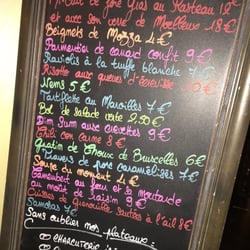 de foie gras au Rasteau 12€
et avec son verre de Moelleux 18€
Beignets de Mozza 4€
Parmentier de canard confit 9€
Raviolis à la truffe blanche 7€
Risotto aux queues d'écrevisse 10€
Nems 5€
Tartiflette au Maroilles 7€
Bol de salade verte 2.50
Dim Sum aux crevettes 9€
Chili con carne 8€
Gratin de Choux de Bruxelles 6€
Travers de porc caramélisés 7€
Soupe du moment 4€
Camembert au four et à la moutarde
au moût de raisin 9€
Cuisses de Grenouille sautées à l'ail 8€
Samosas 7€
Sans oublier nos plateaux:
CHARCUTERIE